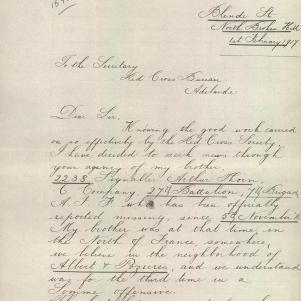 Blende St
North Broken Hill
1st February 1917
To the Secretary
Red Cross Bureau
Adelaide
Dear Sir,
Knowing the good work carried
on so effectively by the Red Cross Society
I have decided to seek news through
your agency of my brother
2238 Signaller Arthur Horn,
C Company, 27th Battalion, 7th Brigade,
A.I.F. who has been officially
reported missing, since 5th November 16
My brother was at that time, on
the North of France, somewhere,
we believe in the neighborhood of
Albert & Pozieres, and we understand
was for the third time in a
Somme offensive.